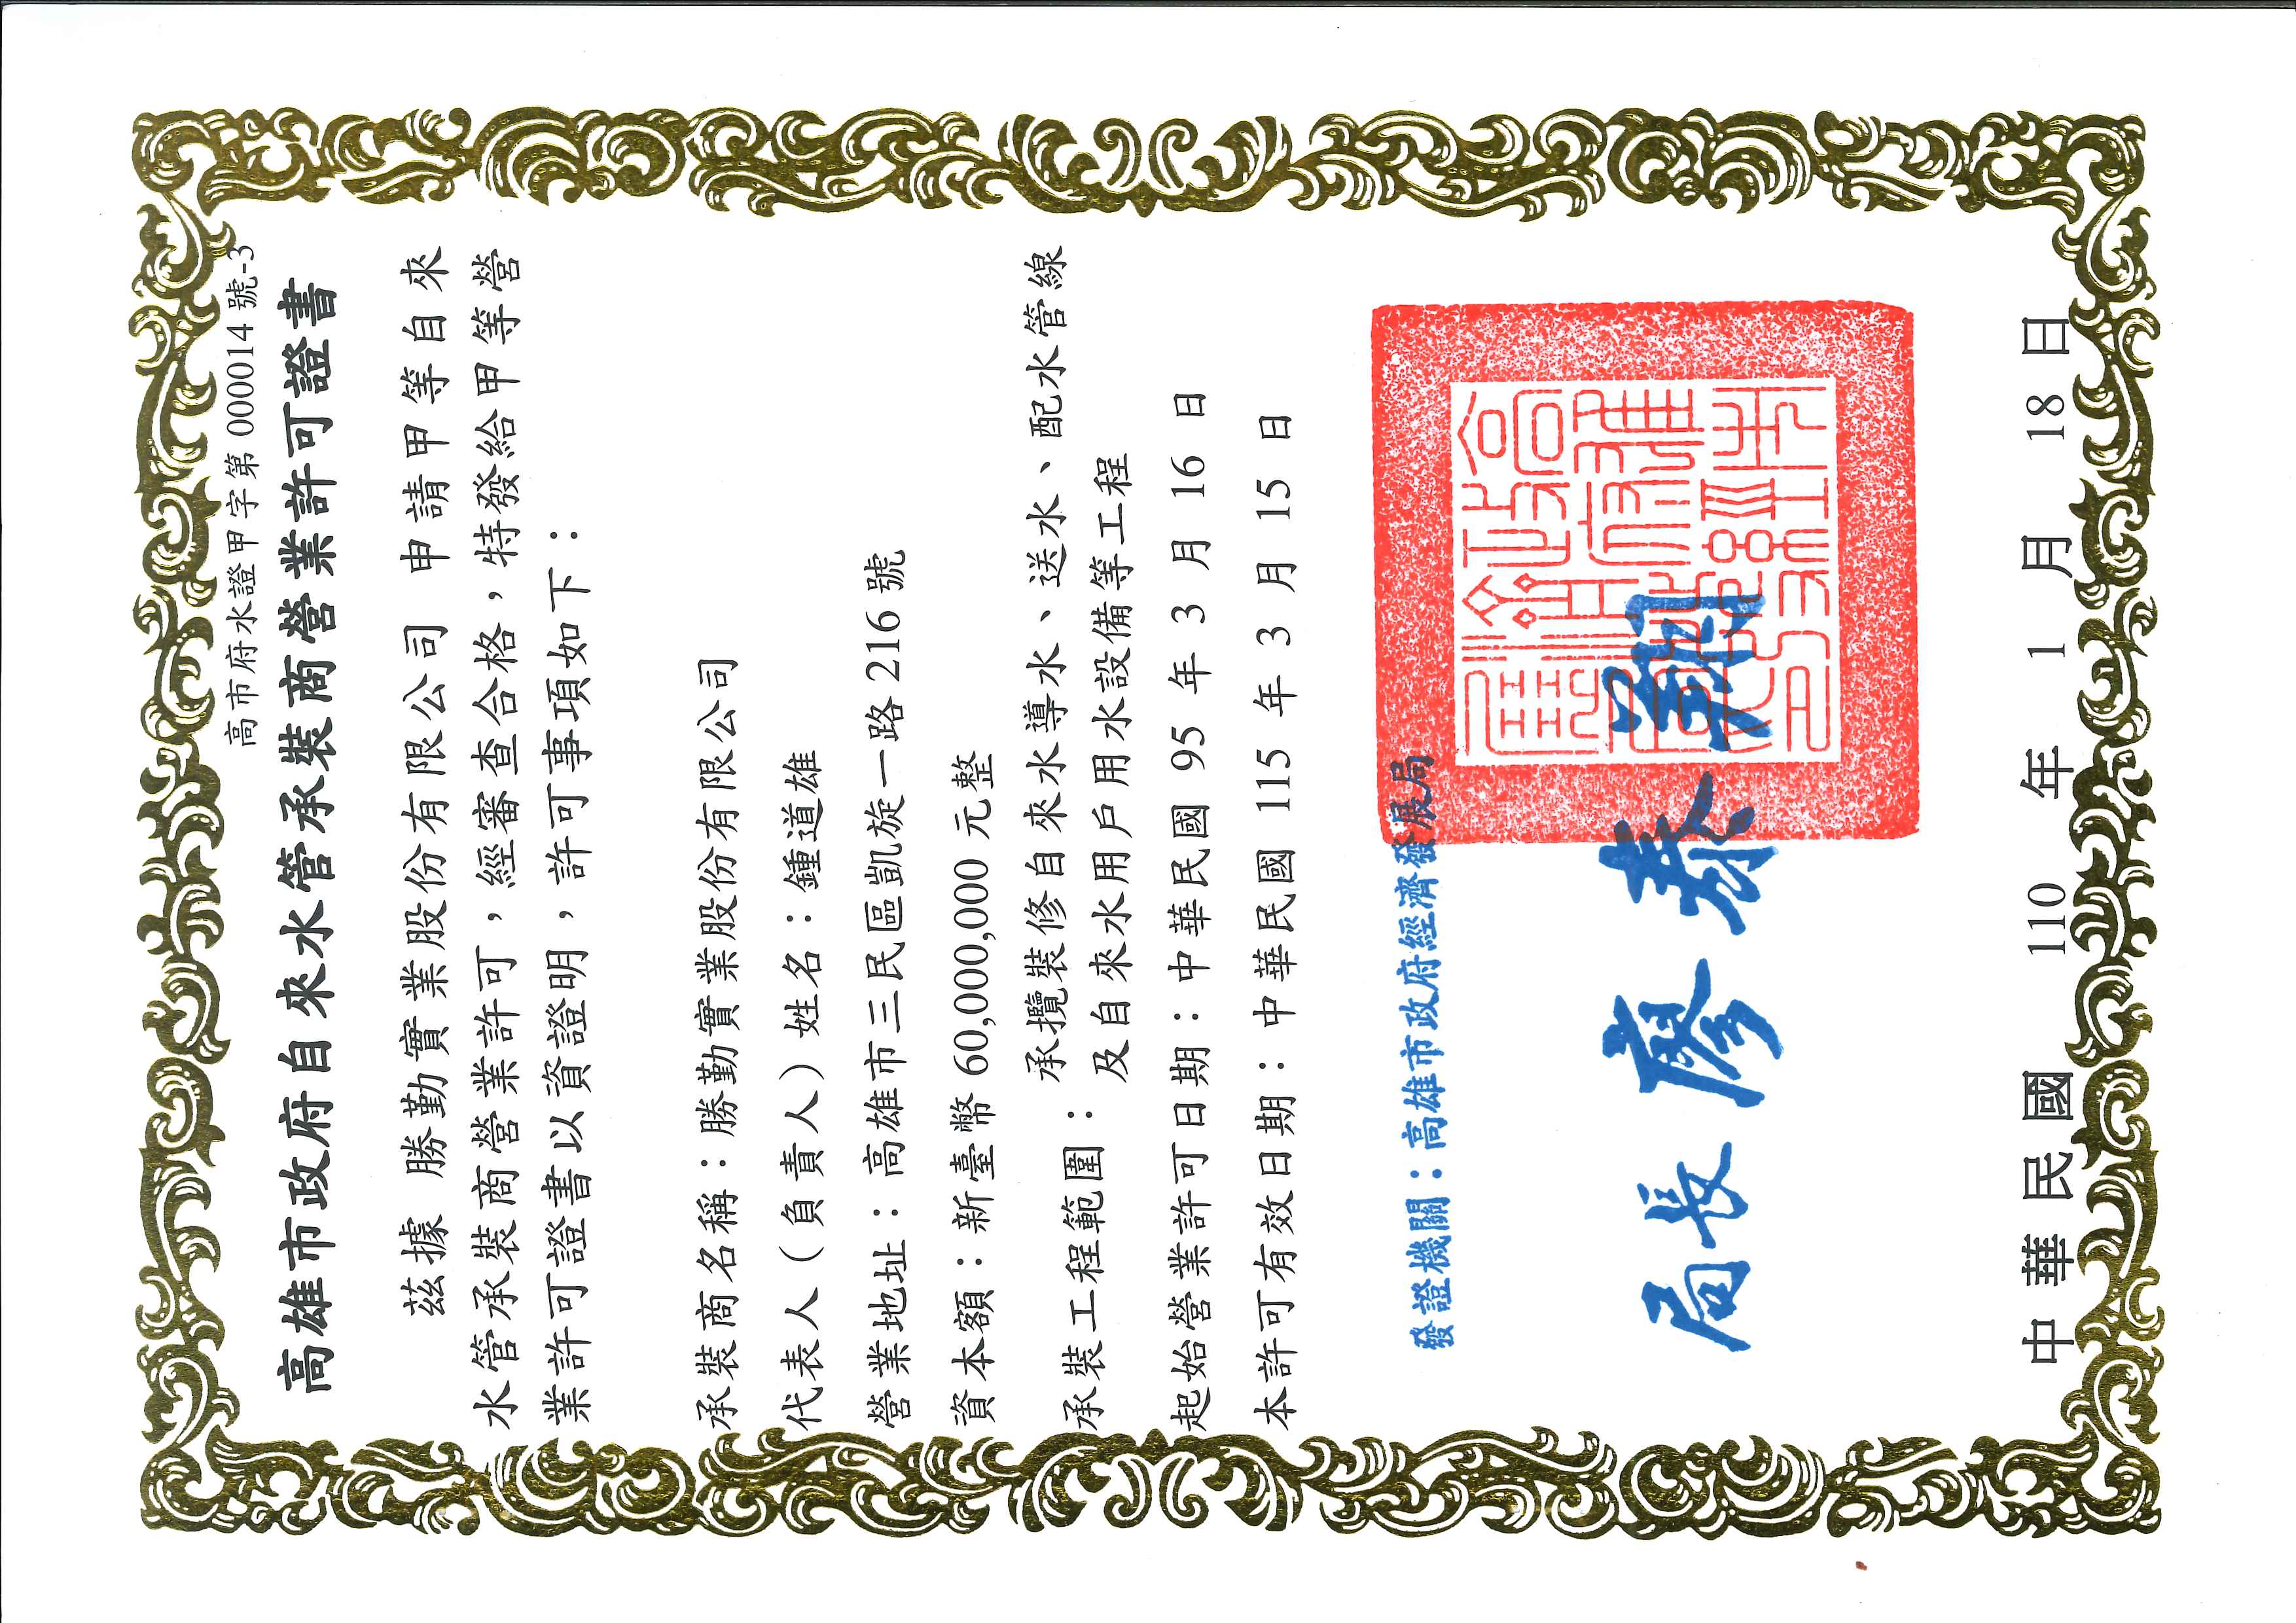 高市府水證甲字第 000014 號-3
高雄市政府自來水管承裝商營業許可證書
茲據 勝勤實業股份有限公司 申請甲等自來
水管承裝商營業許可，經審查合格，特發給甲等營
業許可證書以資證明，許可事項如下：
承裝商名稱：勝勤實業股份有限公司
代表人（負責人）姓名：鍾道雄
營業地址：高雄市三民區凱旋一路 216 號
資本額：新臺幣 60,000,000 元整
承裝工程範圍：承攬裝修自來水導水、送水、配水管線
及自來水用戶用水設備等工程
起始營業許可日期：中華民國 95 年 3 月 16 日
本許可有效日期：中華民國 115 年 3 月 15 日
發證機關：高雄市政府經濟發展局
局長 廖泰翔
中華民國 110 年 1 月 18 日